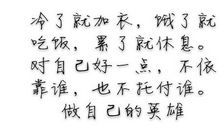 冷了就加衣，饿了就
吃饭，累了就休息。
对自己好一点，不依
靠谁，也不托付谁。
做自己的英雄